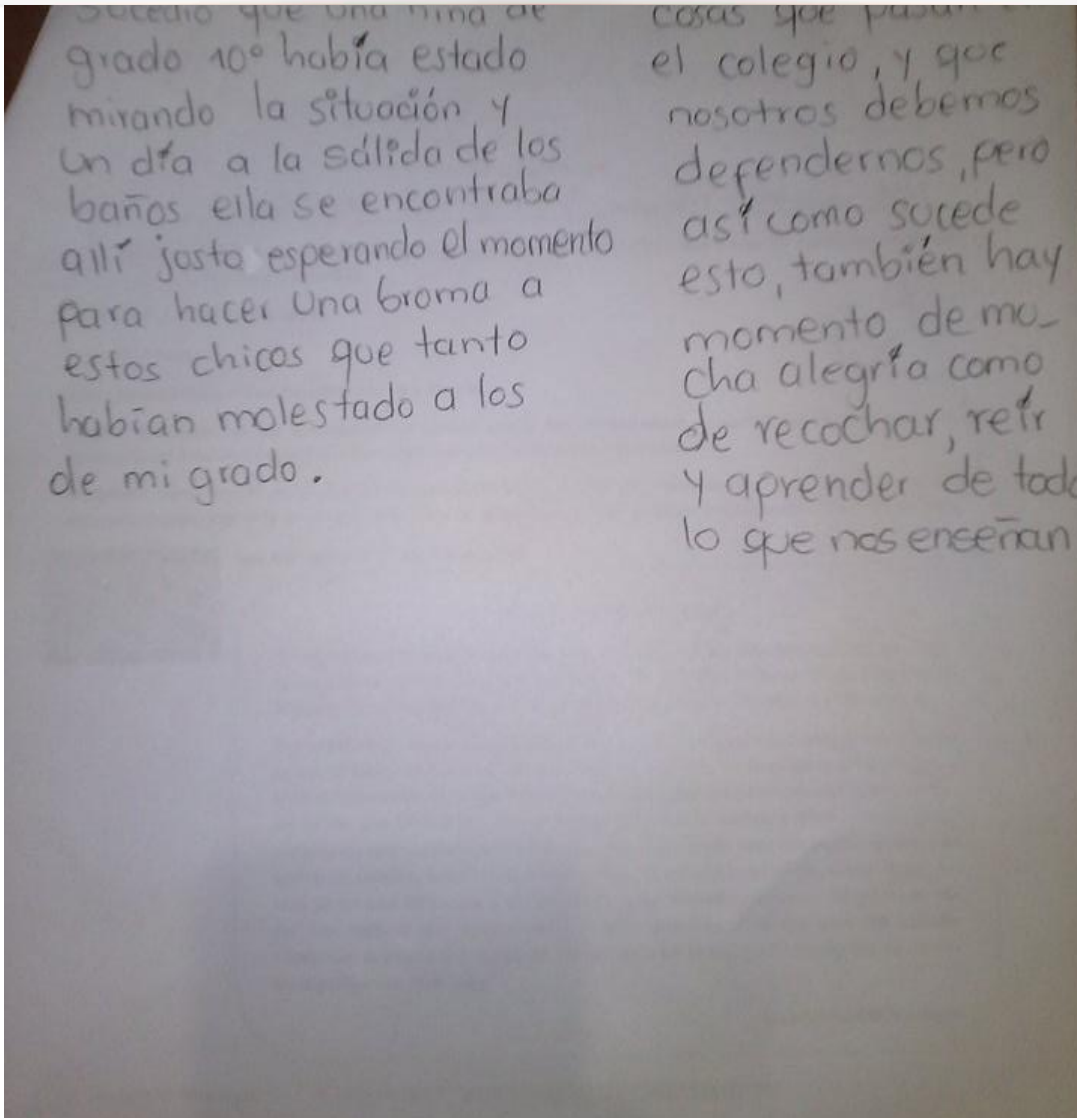 Sucedió que una niña de
grado 10° había estado
mirando la situación y
un día a la sálida de los
baños ella se encontraba
allí justo esperando el momento
para hacer una broma a
estos chicos que tanto
habían molestado a los
de mi grado.
cosas que pasan
el colegio, y que
nosotros debemos
defendernos, pero
así como sucede
esto, también hay
momento de mu-
cha alegría como
de recochar, reír
y aprender de todo
lo que nos enseñan